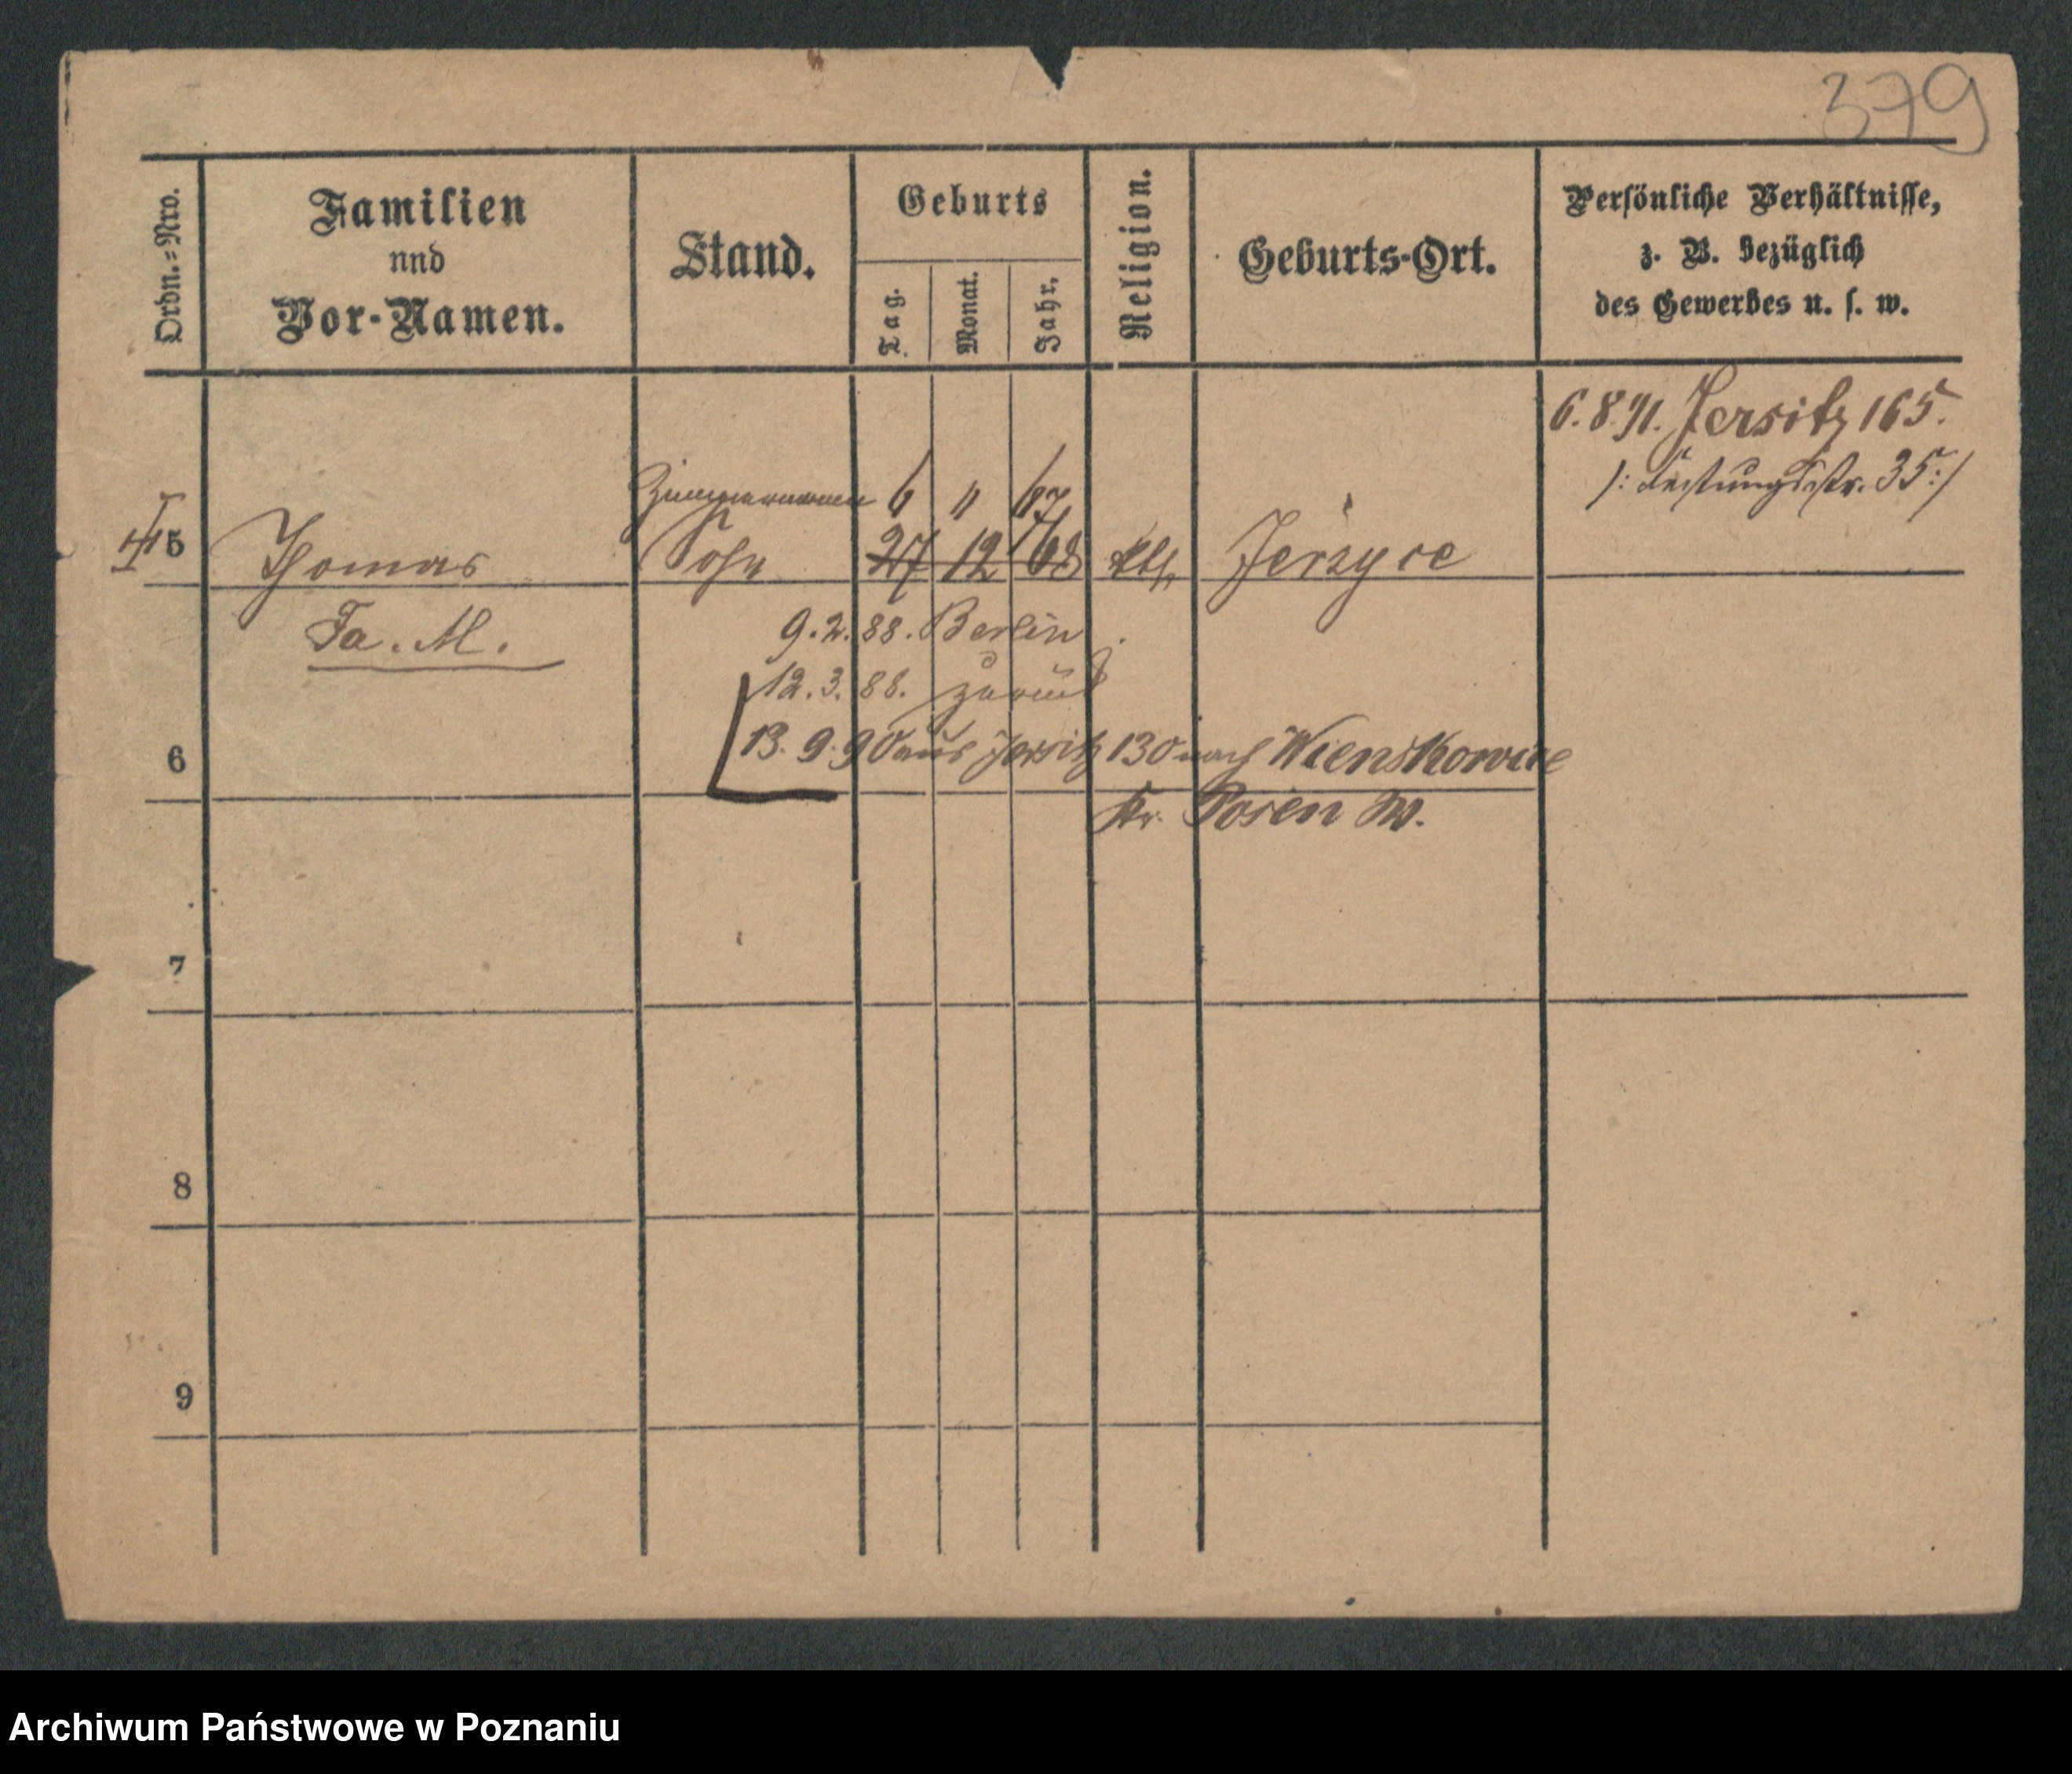 379
Ordn.=Nro.
Familien
und
Vor-Namen.
Stand.
Geburts
Tag.
Monat.
Jahr.
Religion.
Geburts-Ort.
Persönliche Verhältnisse,
z. B. bezüglich
des Gewerbes u. s. w.
6.8.91. Jersitz 165.
/: Festungsstr. 35 :/
Zimmermann 6 11 67
5 Thomas Sohn 27 12 68 kth Jerzyce
Fa. M.
9.2.88. Berlin
12.3.88. zurück
6 13.9.90 aus Jersitz 130 nach Wienskowice
Kr. Posen W.
7
8
9
Archiwum Państwowe w Poznaniu